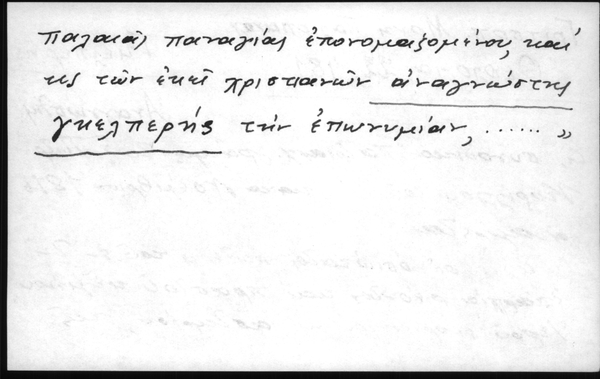 παλαιᾶς παναγίας ἐπονομαζομένου, καί
τις τῶν ἐκεῖ χριστιανῶν ἀναγνώστης
γκελπερής τήν ἐπωνυμίαν, ...... »